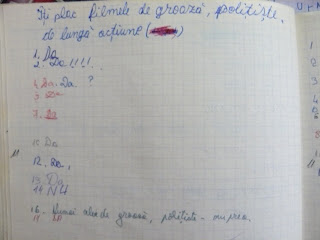 Îți plac filmele de groază, polițiște,
de lungă acțiune (
1. Da
2. Da!!!!
4. Da. Da ?
5. Da
7. Da
10. Da
12. Da.
13. Da
14 NU
16. Numai alea de groază, polițiste - nu prea.
11